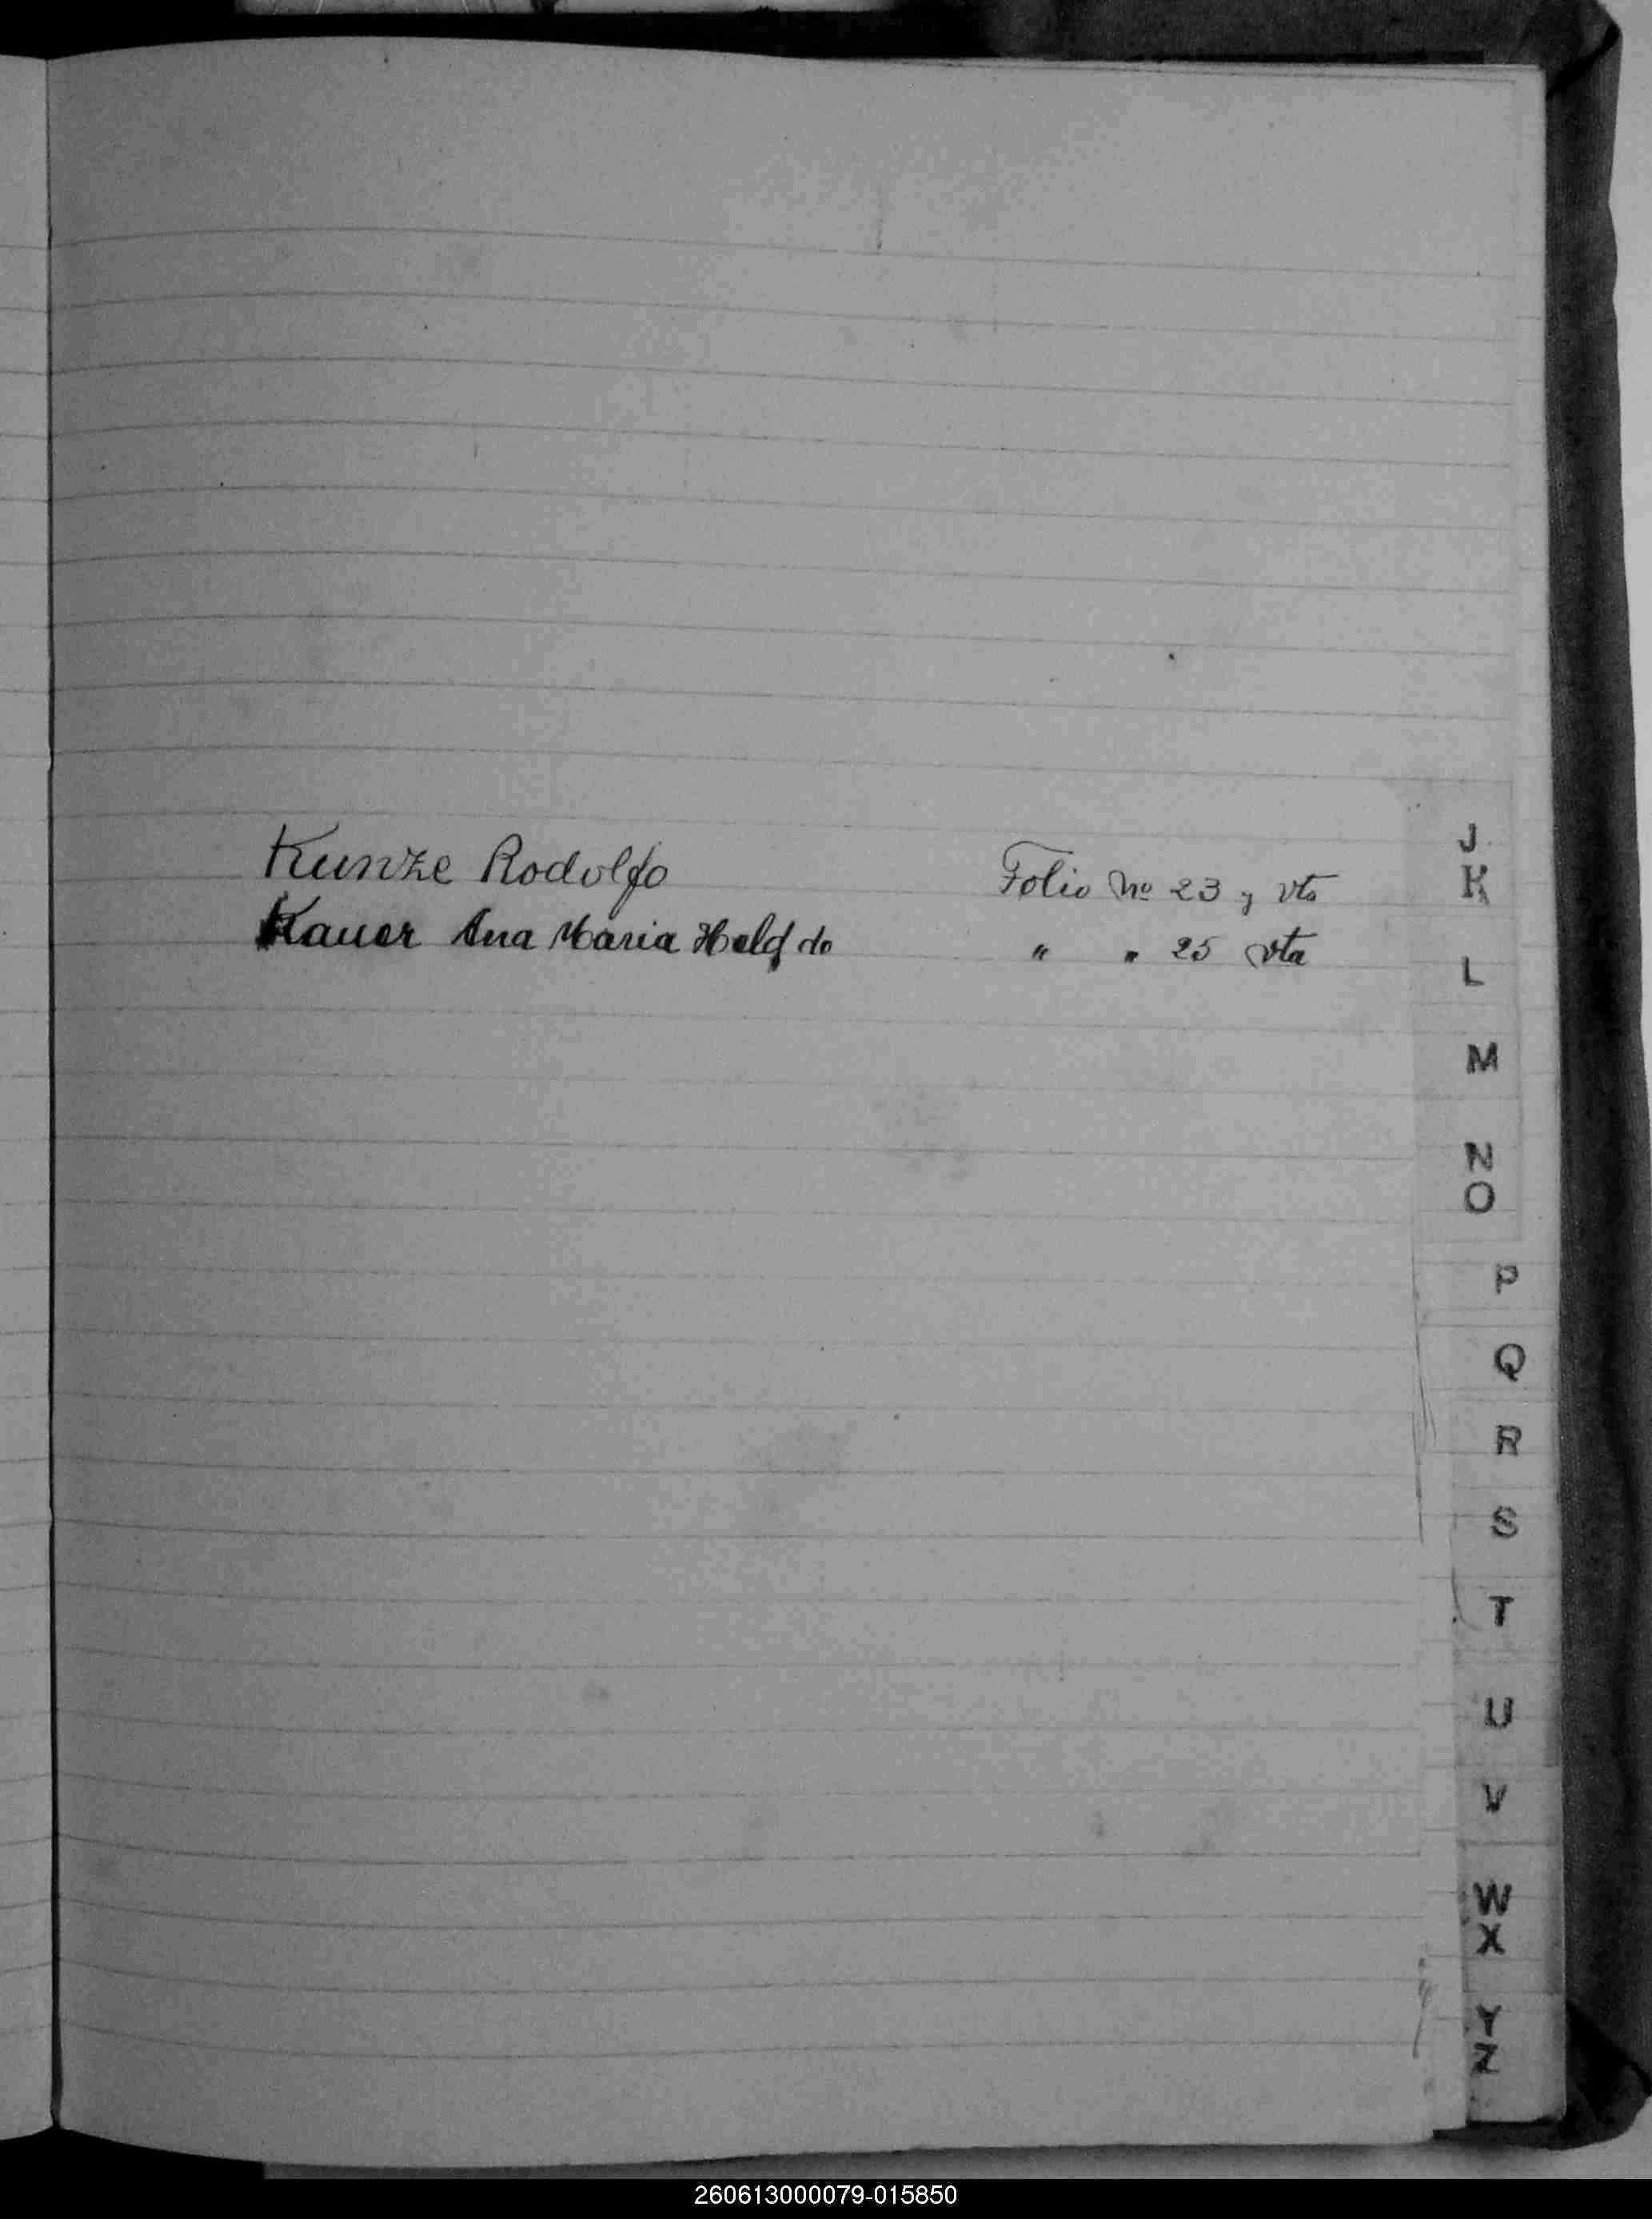 Kunze Rodolfo Folio No 23 y vta
Kauer Ana Maria Held de " " 25 vta
J
K
L
M
N
O
P
Q
R
S
T
U
V
W
X
Y
Z
260613000079-015850